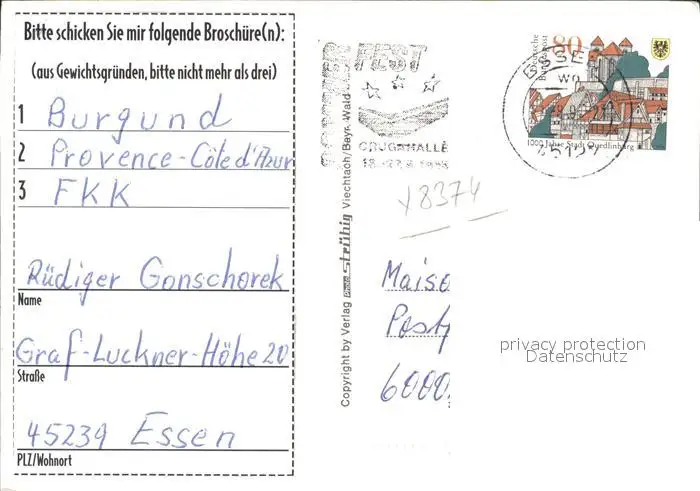 Bitte schicken Sie mir folgende Broschüre(n):
(aus Gewichtsgründen, bitte nicht mehr als drei)
1 Burgund
2 Provence-Côte d'Azur
3 FKK
Rüdiger Gonschorek
Name
Graf-Luckner-Höhe 20
Straße
45239 Essen
PLZ/Wohnort
Copyright by Verlag Strübig Viechtach/Bayr. Wald
FEST
GRUGAHALLE
ESSEN
80
Deutsche Bundespost
1000 Jahre Stadt Quedlinburg
y8374
Maiso
Post
6000
privacy protection
Datenschutz